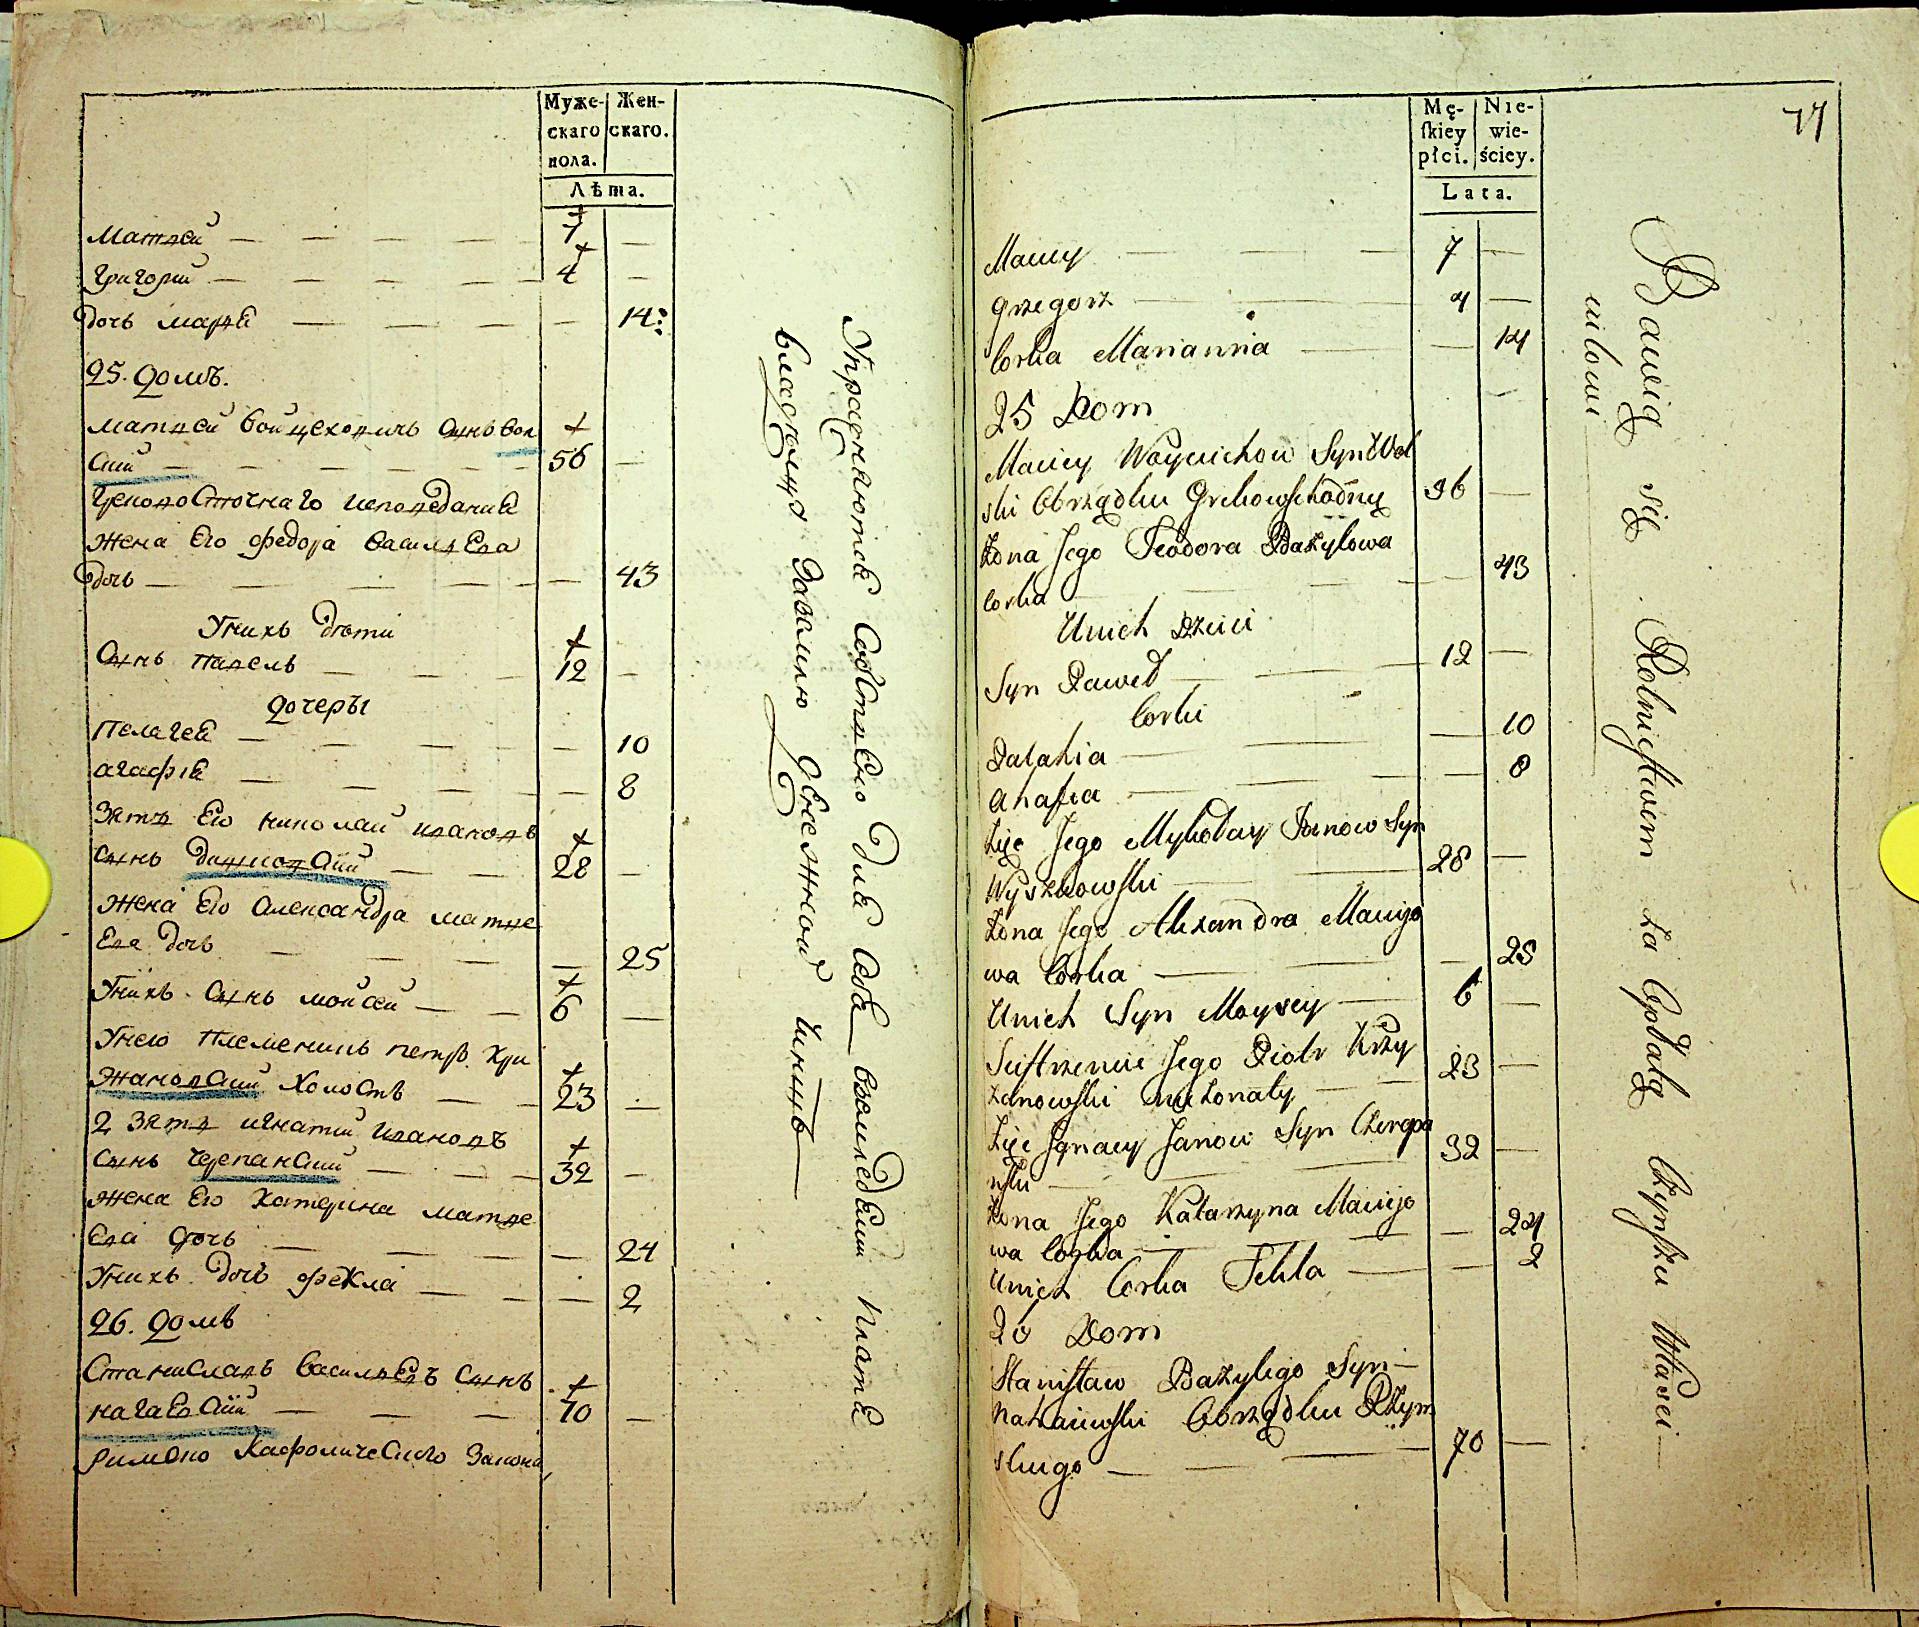 Муже-
скаго
пола.
Жен-
скаго.
Лѣта.
Матвей — 7 —
Григорий — 4 —
дочь марꙗ — 14:
25. домъ.
матвей Войцеховичь сынъ вол
ский — 56 —
Грековосточнаго исповеданиꙗ
жена Его Федора василева
дочь — 43
Уних дети
Сынъ павелъ — 12 —
дочеры
Пелагеꙗ — 10
агафіꙗ — 8
Зять Его николай ивановъ
сынъ — 28 —
жена Его Александра матве
Ева дочь — 25
Унихъ сынъ мойсей — 6 —
Унего племеникъ петръ кри
жановский холостъ — 23 —
2 зять игнатий ивановъ
сынъ черепанский — 32 —
жена Его Катерина матве
Ева дочь — 24
Унихъ дочь фекла — 2
26. домъ
Станиславъ василевъ сынъ
нагаевский — 70 —
римско Кафолическаго закона
Упражнꙗютсꙗ для себꙗ платꙗ
владѣлцу денежной чиншъ
77
Mę-
ſkiey
płci.
Nie-
wie-
ściey.
Lata.
Maciey — 7 —
Grzegorz — 4 —
Corka Marianna — 14
25 Dom
Maciey Woyciechow Syn Wol
ski Obrządku Grekowschodny 56 —
Żona Jego Teodora Bazylowa
Corka — 43
Unich Dzieci
Syn Paweł — 12 —
Corki
Palahia — 10
Ahafia — 8
Zięc Jego Mykołay Janow Syn
Wyszkowski — 28 —
Żona Jego Alexandra Maciejo
wa Corka — 25
Unich Syn Moysey — 6 —
Siestrzeniec Jego Piotr Krzy
żanowski nieżonaty — 23 —
Zięc Jgnacy Janow Syn Czerepa
nski — 32 —
Żona Jego Katarzyna Maciejo
wa Corka — 24
Unich Corka Tekla — 2
26 Dom
Stanisław Bazylego Syn
Nahaiewski Obrządku Rzym
skiego — 70 —
Bawią się Rolnictwem za Opłatą Czynszu Właści
cielowi